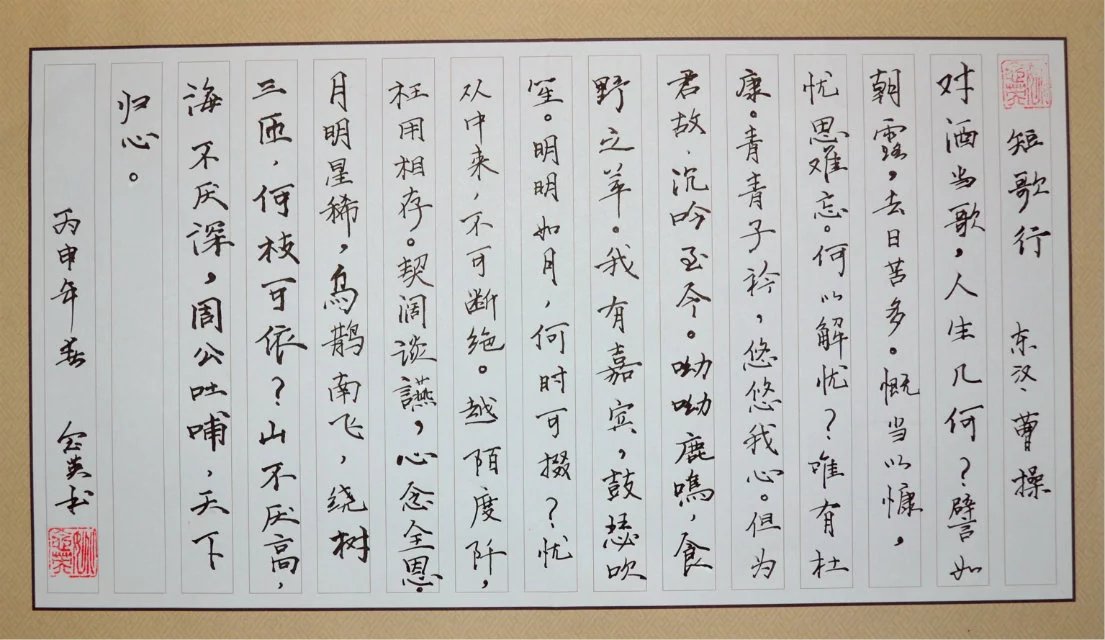 短歌行 东汉·曹操
对酒当歌，人生几何？譬如
朝露，去日苦多。慨当以慷，
忧思难忘。何以解忧？唯有杜
康。青青子衿，悠悠我心。但为
君故，沉吟至今。呦呦鹿鸣，食
野之苹。我有嘉宾，鼓瑟吹
笙。明明如月，何时可掇？忧
从中来，不可断绝。越陌度阡，
枉用相存。契阔谈讌，心念全恩。
月明星稀，乌鹊南飞，绕树
三匝，何枝可依？山不厌高，
海不厌深，周公吐哺，天下
归心。
丙申年春 金英书